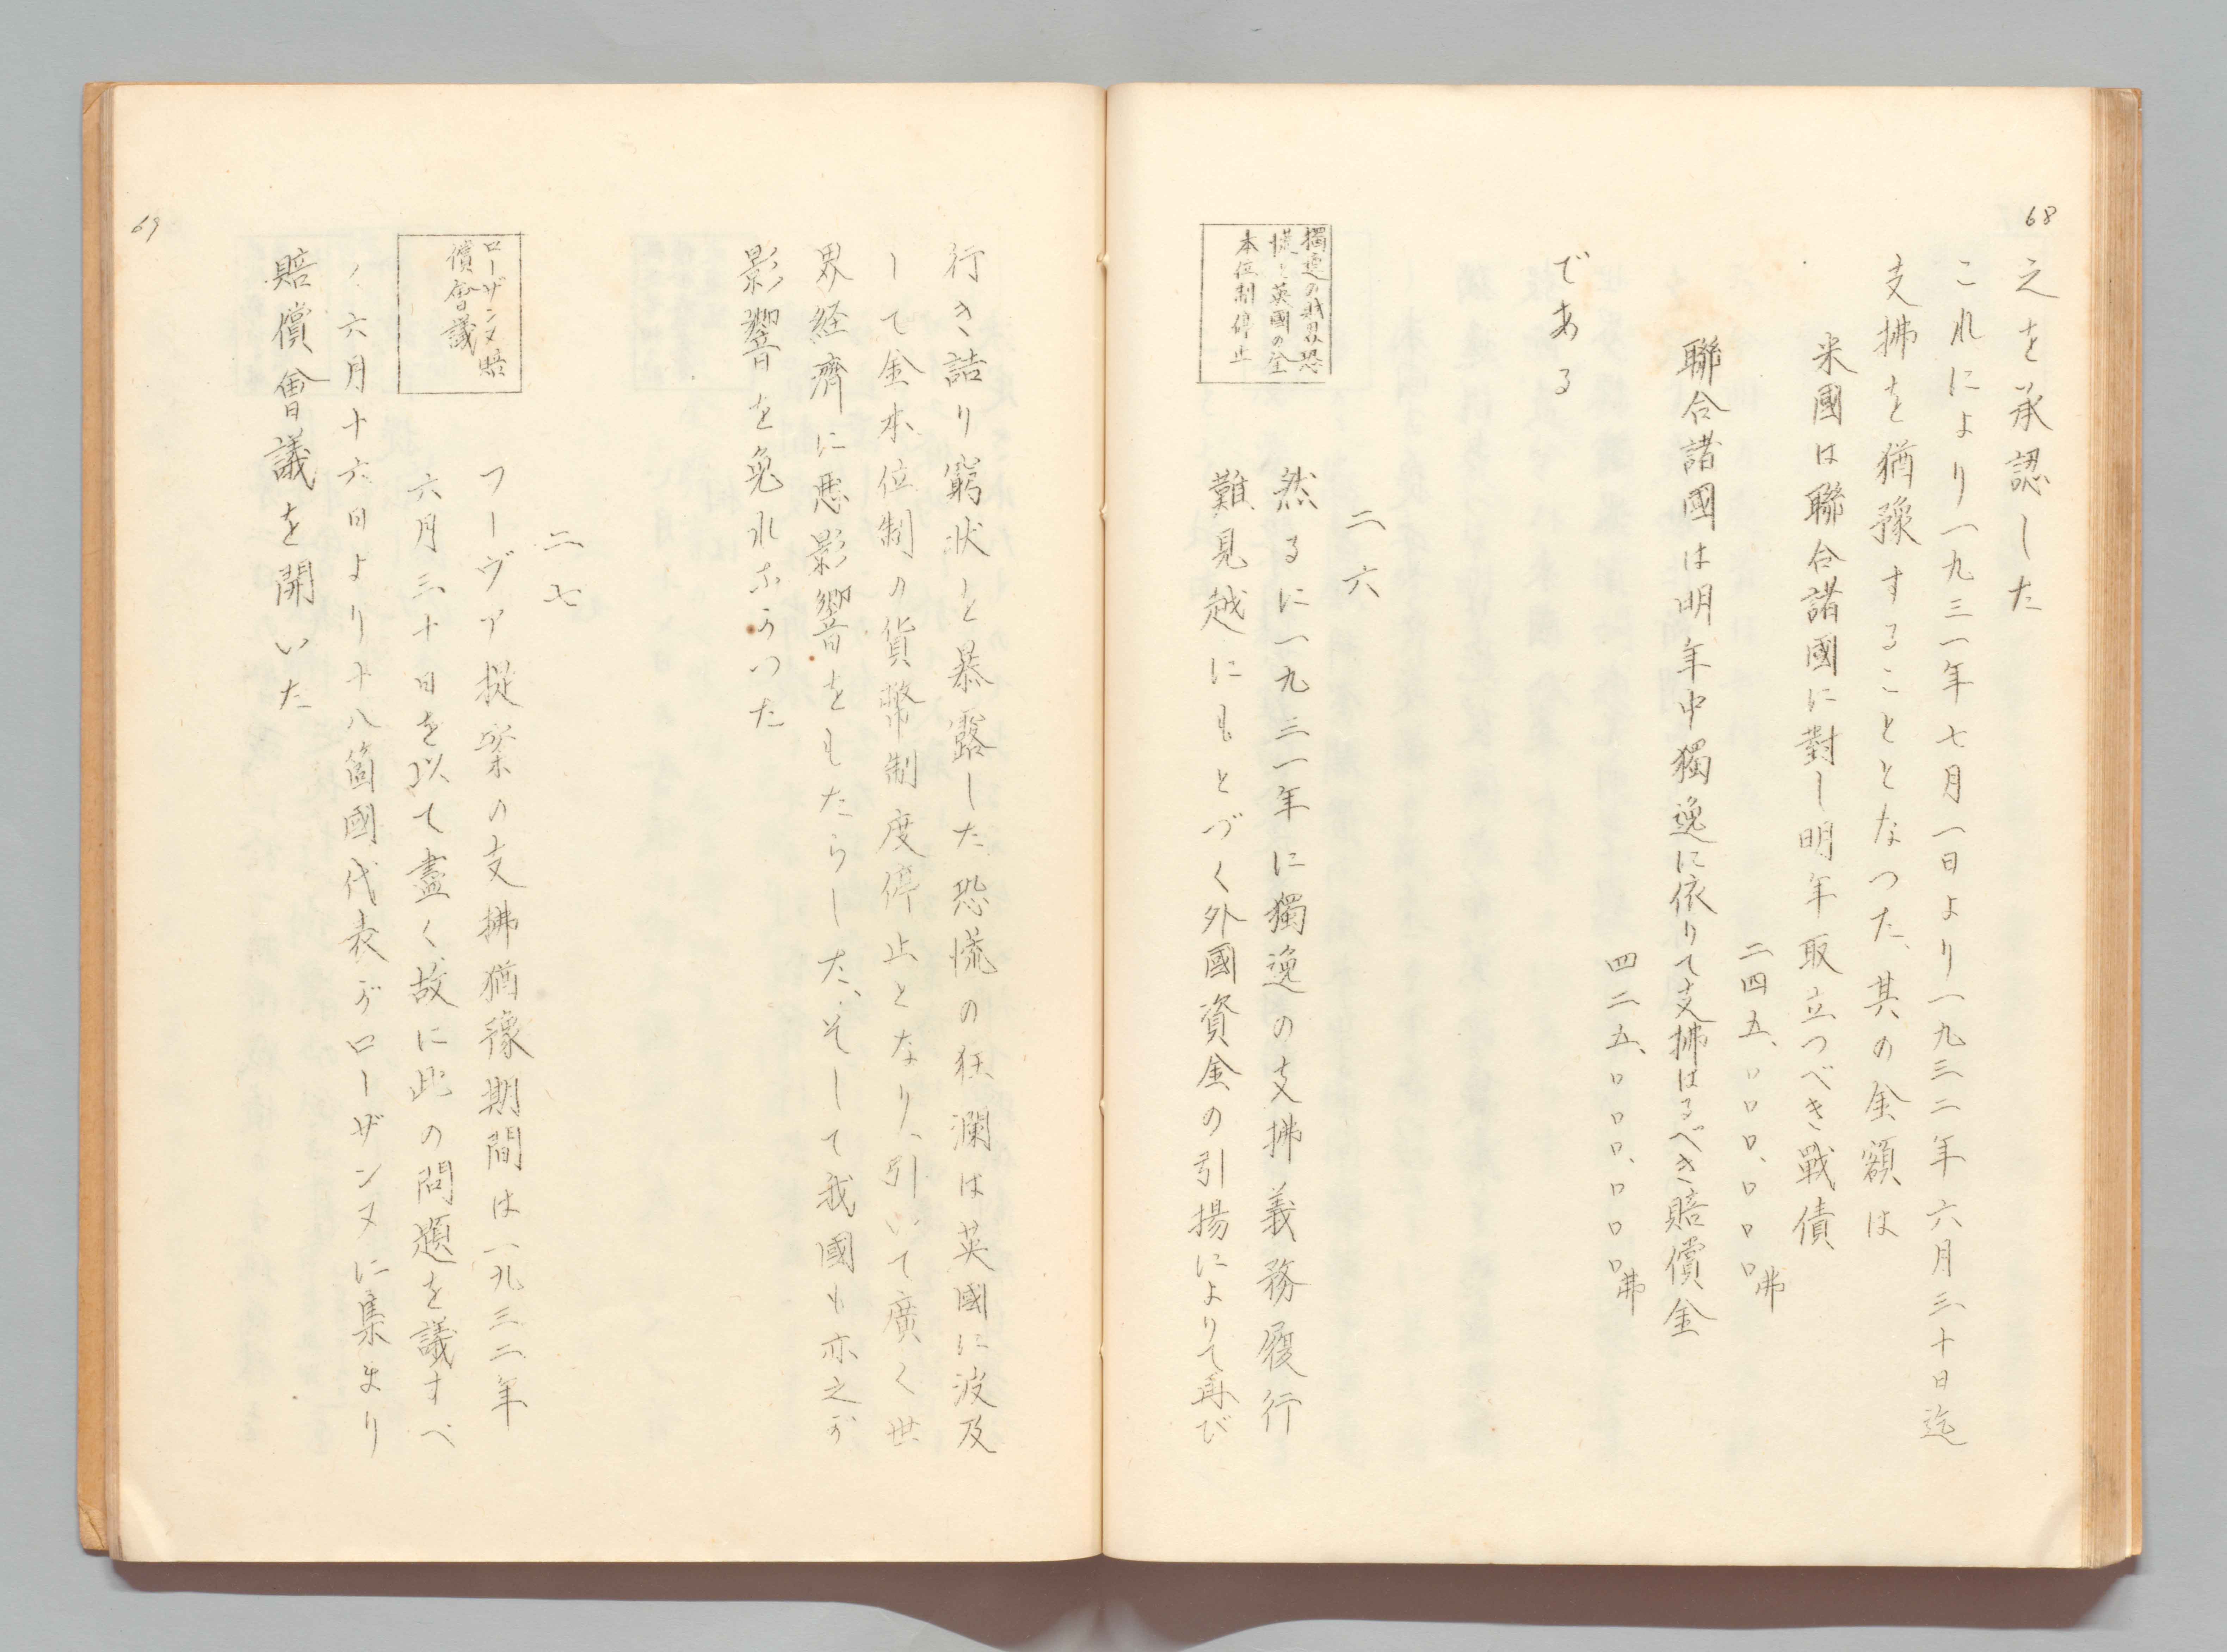 68
之を承認した
これにより一九三一年七月一日より一九三二年六月三十日迄
支拂を猶豫することとなつた、其の金額は
米國は聯合諸國に對し明年取立つべき戰債
二四五、〇〇〇、〇〇〇弗
聯合諸國は明年中獨逸に依りて支拂はるべき賠償金
四二五、〇〇〇、〇〇〇弗
である
二六
獨逸の財界恐
慌と英國の金
本位制停止
然るに一九三一年に獨逸の支拂義務履行
難見越にもとづく外國資金の引揚によりて再び
行き詰り窮状と暴露した恐慌の狂瀾は英國に波及
して金本位制の貨幣制度停止となり、引いて廣く世
界経濟に悪影響をもたらした、そして我國も亦之が
影響を免れなかつた
二七
ローザンヌ賠
償會議
フーヴァ提案の支拂猶豫期間は一九三二年
六月三十日を以て盡く、故に此の問題を議すべ
く六月十六日より十八箇國代表がローザンヌに集まり
賠償會議を開いた
69